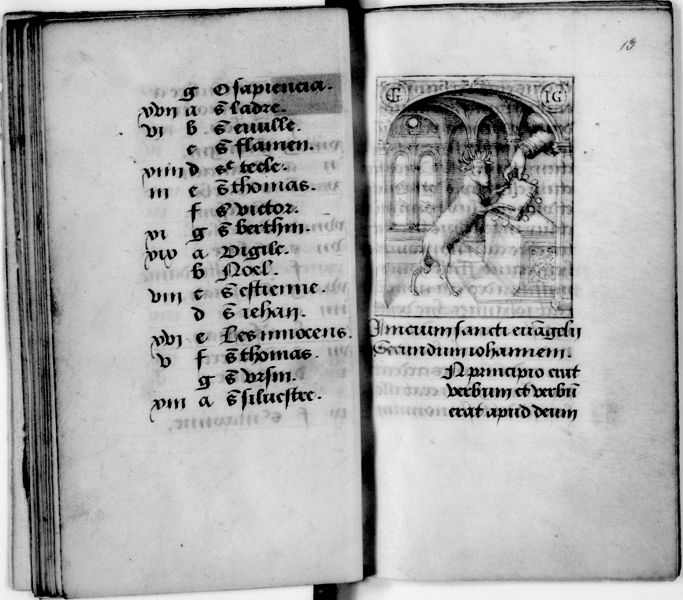 g O sapiencia.
xvii a s̄ ladre.
vi b s̄
c s̄ flamen.
xiiii d sᵉ tecle.
iii e s̄ thomas.
f s̄ victor.
xi g s̄ berthin.
xix a Vigile.
b Noel.
viii c s̄ estienne.
d s̄ iehan.
xvi e Les innocens.
v f s̄ thomas.
g s̄ ursin.
xiii a s̄ silvestre.
13
G IG
Inicium sancti evāgelii
Secundum iohannem.
N principio erat
verbum et verbū
erat apud deum